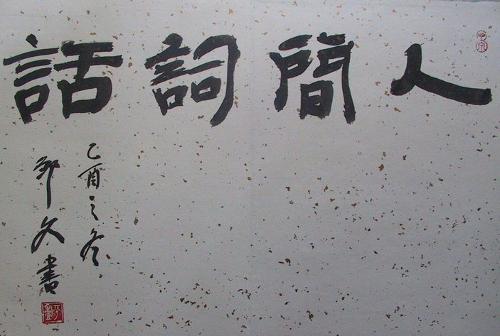 人間詞話
乙酉之冬
久書